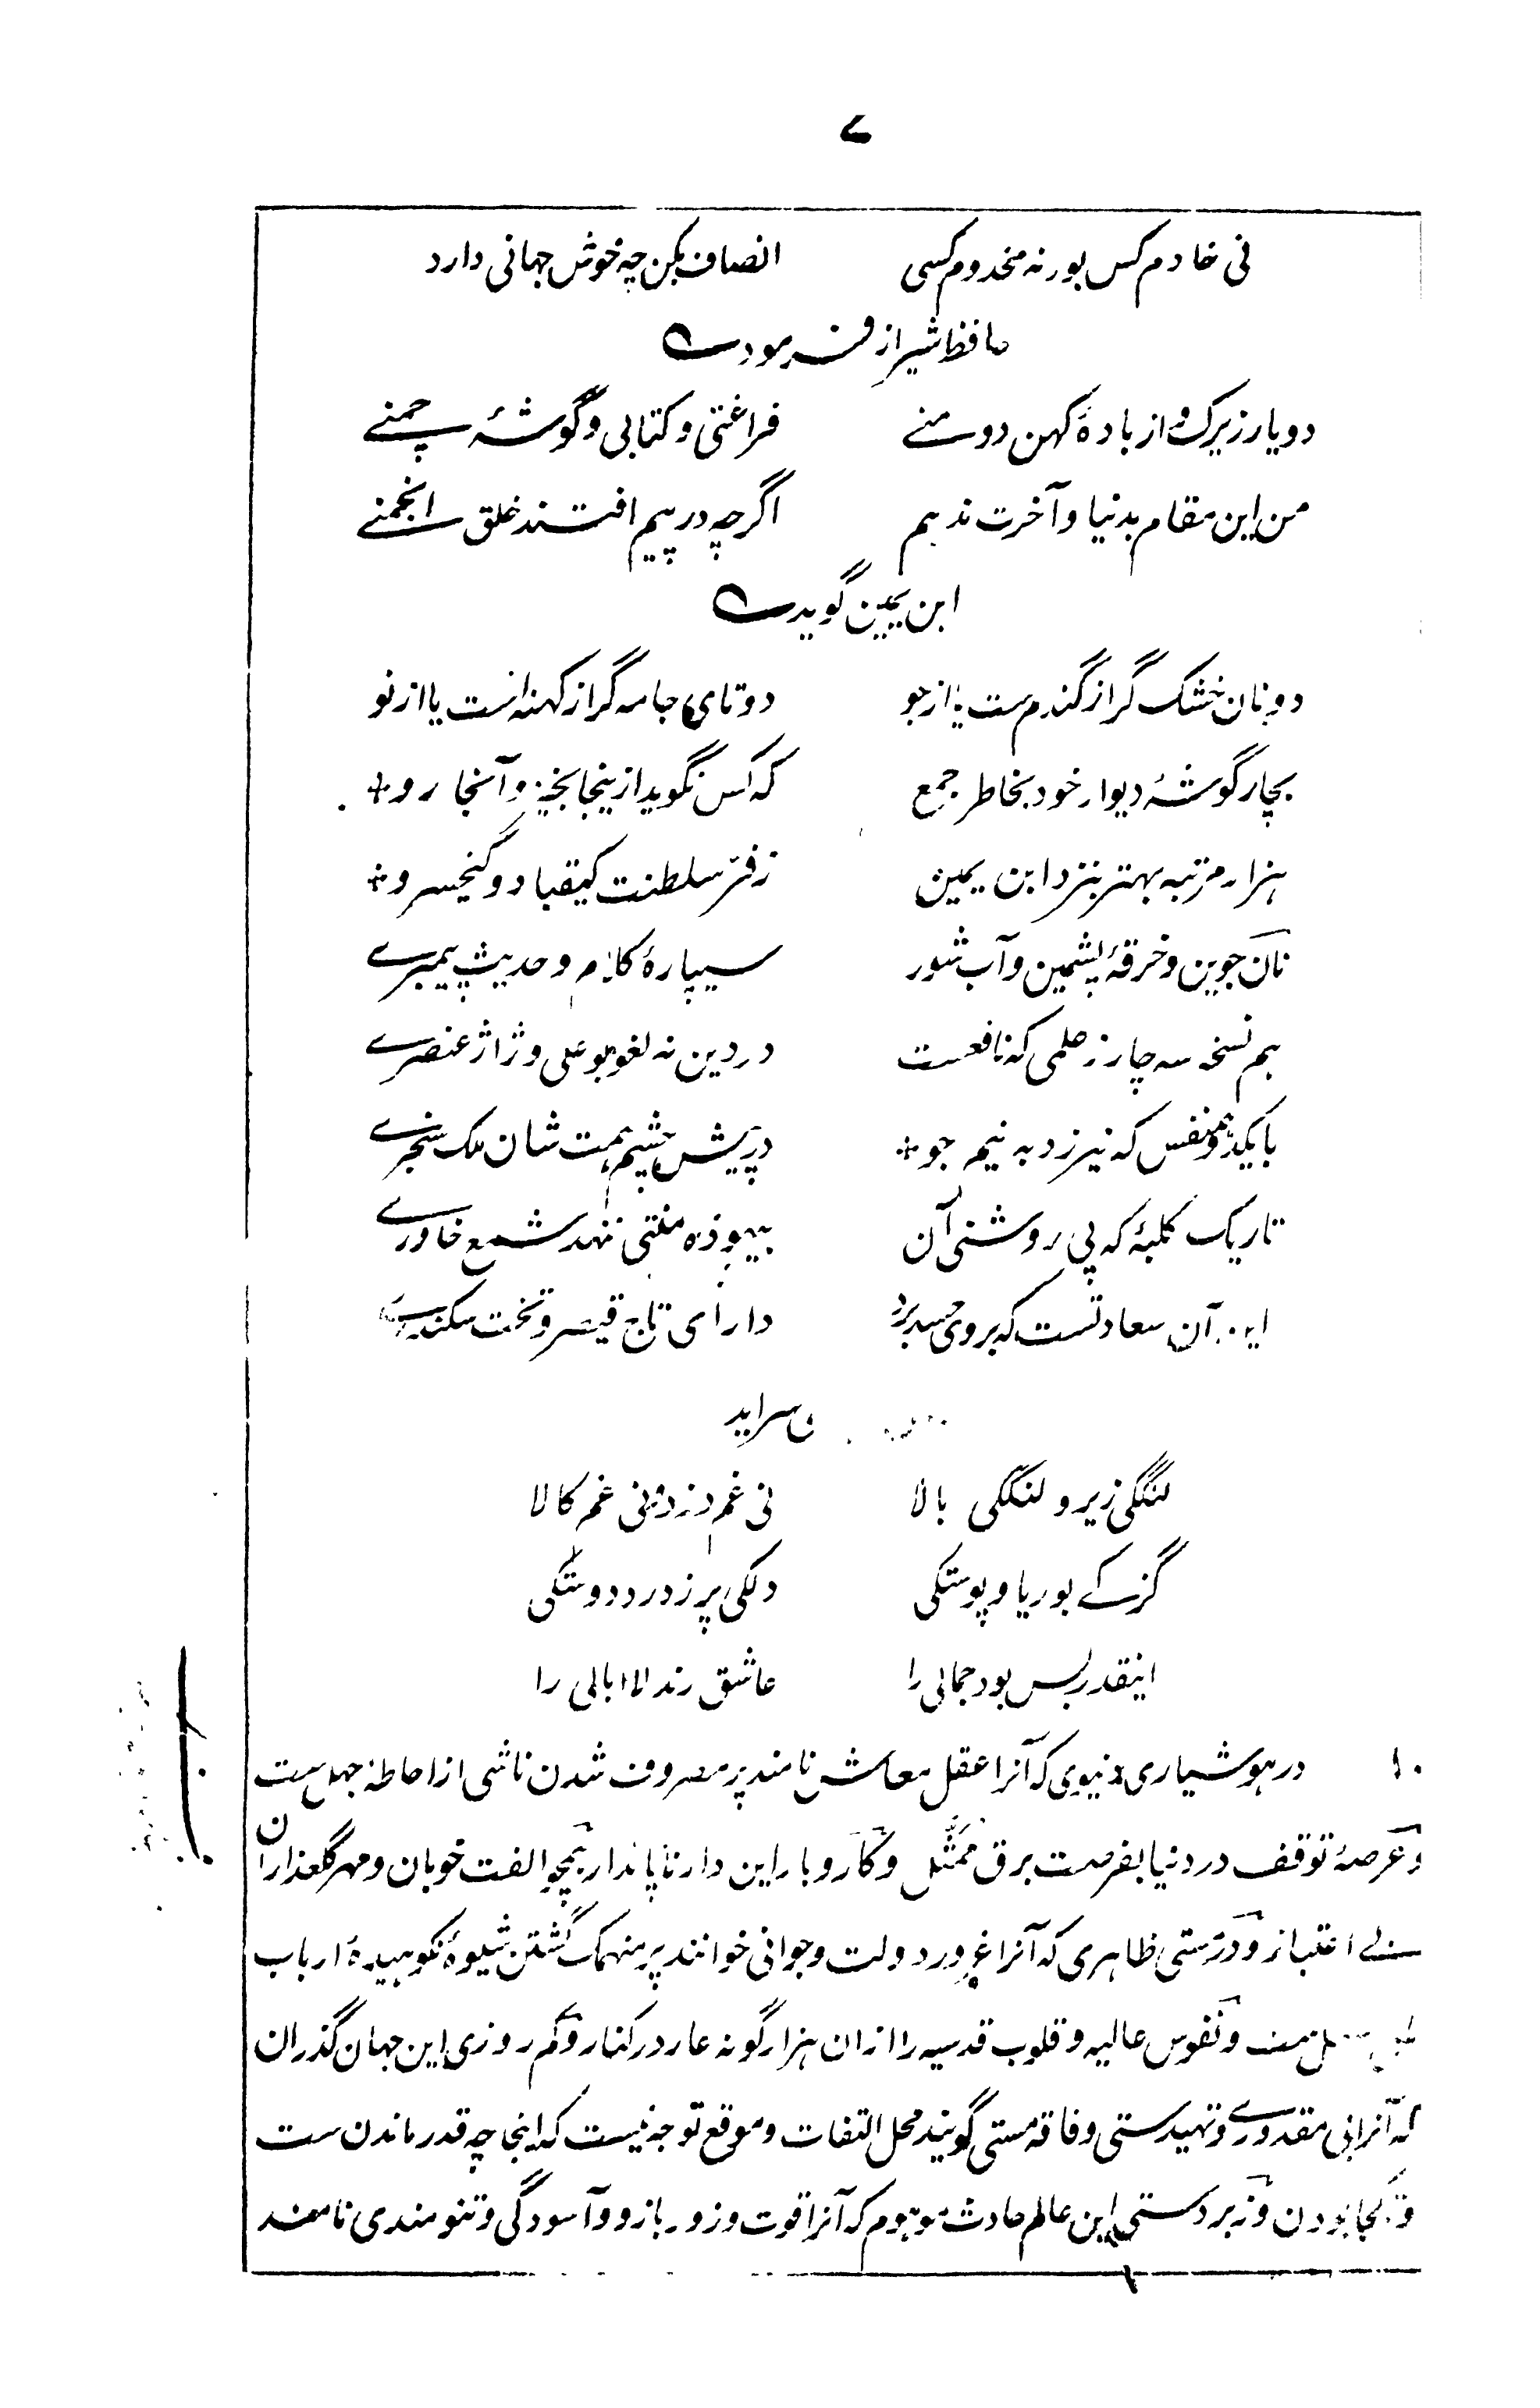 ۷
نی خادم کس بود نه مخدوم کسی انصاف بکن چه خوش جهانی دارد
حافظ شیراز فرموده
دو یار زیرک و از بادهٔ کهن دو منے فراغتی و کتابی و گوشهٔ چمنے
من این مقام بدنیا و آخرت ندهم اگرچه در پیم افتند خلق انجمنے
ابن یمین گوید
دو نان خشک گر از گندم ست یا از جو دو تای جامه گر از کهنه است یا از نو
بچار گوشهٔ دیوار خود بخاطر جمع که کس نگوید ازینجا بخیز و آنجا رو
هزار مرتبه بهتر بنزد ابن یمین ز فرّ سلطنت کیقباد و کیخسرو
نان جوین و خرقهٔ پشمین و آب شور سیپارهٔ کلام و حدیث پیمبرے
هم نسخه سه چار ز علمی که نافعست در دین نه لغو بوعلی و ژاژ عنصرے
با یکدو همنفس که نیرزد به نیم جو در پیش چشم همت شان ملک سنجرے
تاریک کلبهٔ که پی روشنی آن بیهوده منتی ننهد شمع خاورے
این آن سعادتست که بروی حسد برد دارای تاج قیصر و تخت سکندرے
سراید
لنگکی زیر و لنگکی بالا نی غم دزد و نی غم کالا
گزکے بوریا و پوستکی دلکی پر ز درد دوستکی
اینقدر بس بود جمالی را عاشق رند لاابالی را
۱۰ در هوشیاری دنیوی که آنرا عقل معاش نامند پر مصروف شدن ناشی از احاطهٔ جهل ست
و عرصهٔ توقف در دنیا بفرصت برق ممثل و کاروبار این دار ناپاندار همچو الفت خوبان و مهر گلعذاران
بے اعتبار و درستی ظاهری که آنرا غرور دولت و جوانی خوانند پر منهمک گشتن شیوهٔ نکوهیدهٔ ارباب
ست و نفوس عالیه و قلوب قدسیه را ازان هزار گونه عار در کنار و کم روزی این جهان گذران
که آنرا بی مقدورے و تهیدستی و فاقه مستی گویند محل التفات و موقع توجه نیست که اینجا چه قدر ماندن ست
و بکجا بودن و زبردستی این عالم حادث موهوم که آنرا قوت و زور بازو و آسودگی و تنومندی نامند